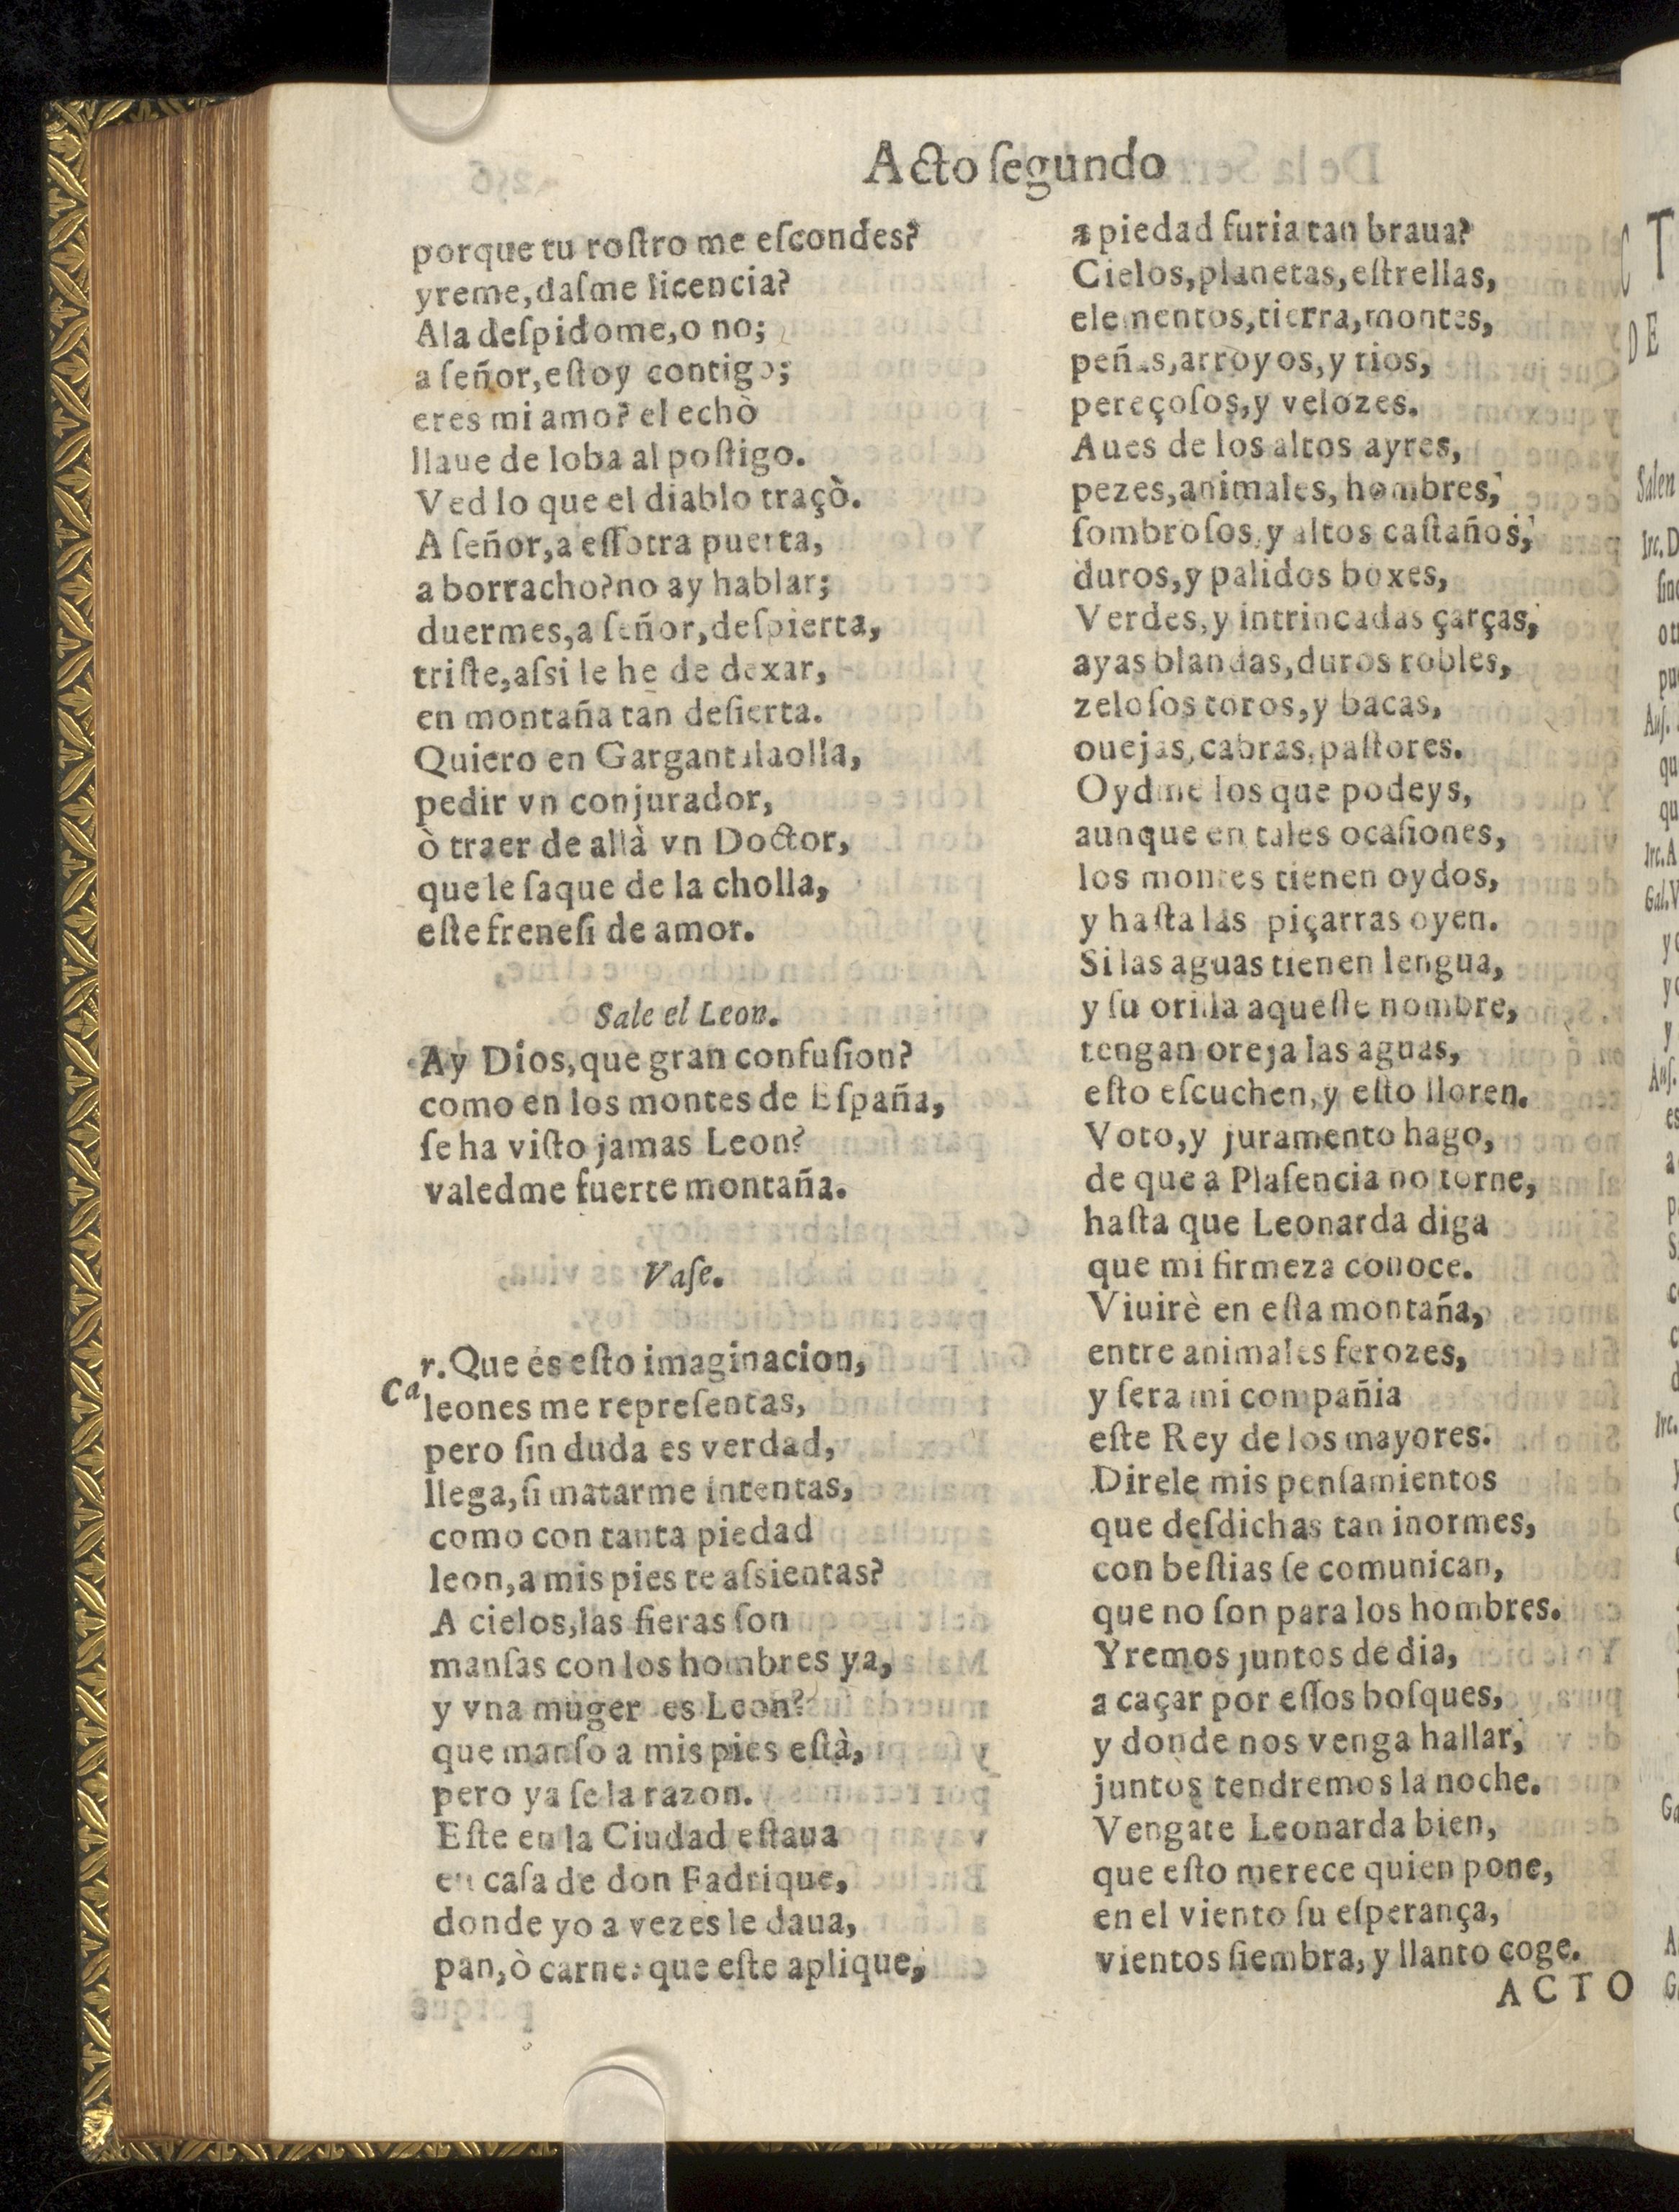 Acto ſegundo
porque tu roſtro me eſcondes?
yreme, daſme licencia?
Ala deſpidome, o no;
a ſeñor, eſtoy contigo;
eres mi amo? el echò
llaue de loba al poſtigo.
Ved lo que el diablo traçò.
A ſeñor, a eſſotra puerta,
a borracho? no ay hablar;
duermes, a ſeñor, deſpierta,
triſte, aſsi le he de dexar,
en montaña tan deſierta.
Quiero en Gargantalaolla,
pedir vn conjurador,
ò traer de allà vn Doctor,
que le ſaque de la cholla,
eſte freneſi de amor.
Sale el Leon.
Ay Dios, que gran confuſion?
como en los montes de Eſpaña,
ſe ha viſto jamas Leon?
valedme fuerte montaña.
Vaſe.
Car. Que es eſto imaginacion,
leones me repreſentas,
pero ſin duda es verdad,
llega, ſi matarme intentas,
como con tanta piedad
leon, a mis pies te aſsientas?
A cielos, las fieras ſon
manſas con los hombres ya,
y vna muger es Leon?
que manſo a mis pies eſtà,
pero ya ſe la razon.
Eſte en la Ciudad eſtaua
en caſa de don Fadrique,
donde yo a vezes le daua,
pan, ò carne: que eſte aplique,
a piedad furia tan braua?
Cielos, planetas, eſtrellas,
elementos, tierra, montes,
peñas, arroyos, y rios,
pereçoſos, y velozes.
Aues de los altos ayres,
pezes, animales, hombres,
ſombroſos, y altos caſtaños,
duros, y palidos boxes,
Verdes, y intrincadas çarças,
ayas blandas, duros robles,
zeloſos toros, y bacas,
ouejas, cabras, paſtores.
Oydme los que podeys,
aunque en tales ocaſiones,
los montes tienen oydos,
y haſta las piçarras oyen.
Si las aguas tienen lengua,
y ſu orilla aqueſte nombre,
tengan oreja las aguas,
eſto eſcuchen, y eſto lloren.
Voto, y juramento hago,
de que a Plaſencia no torne,
haſta que Leonarda diga
que mi firmeza conoce.
Viuirè en eſta montaña,
entre animales ferozes,
y ſera mi compañia
eſte Rey de los mayores.
Direle mis penſamientos
que deſdichas tan inormes,
con beſtias ſe comunican,
que no ſon para los hombres.
Yremos juntos de dia,
a caçar por eſſos boſques,
y donde nos venga hallar,
juntos tendremos la noche.
Vengate Leonarda bien,
que eſto merece quien pone,
en el viento ſu eſperança,
vientos ſiembra, y llanto coge.
ACTO